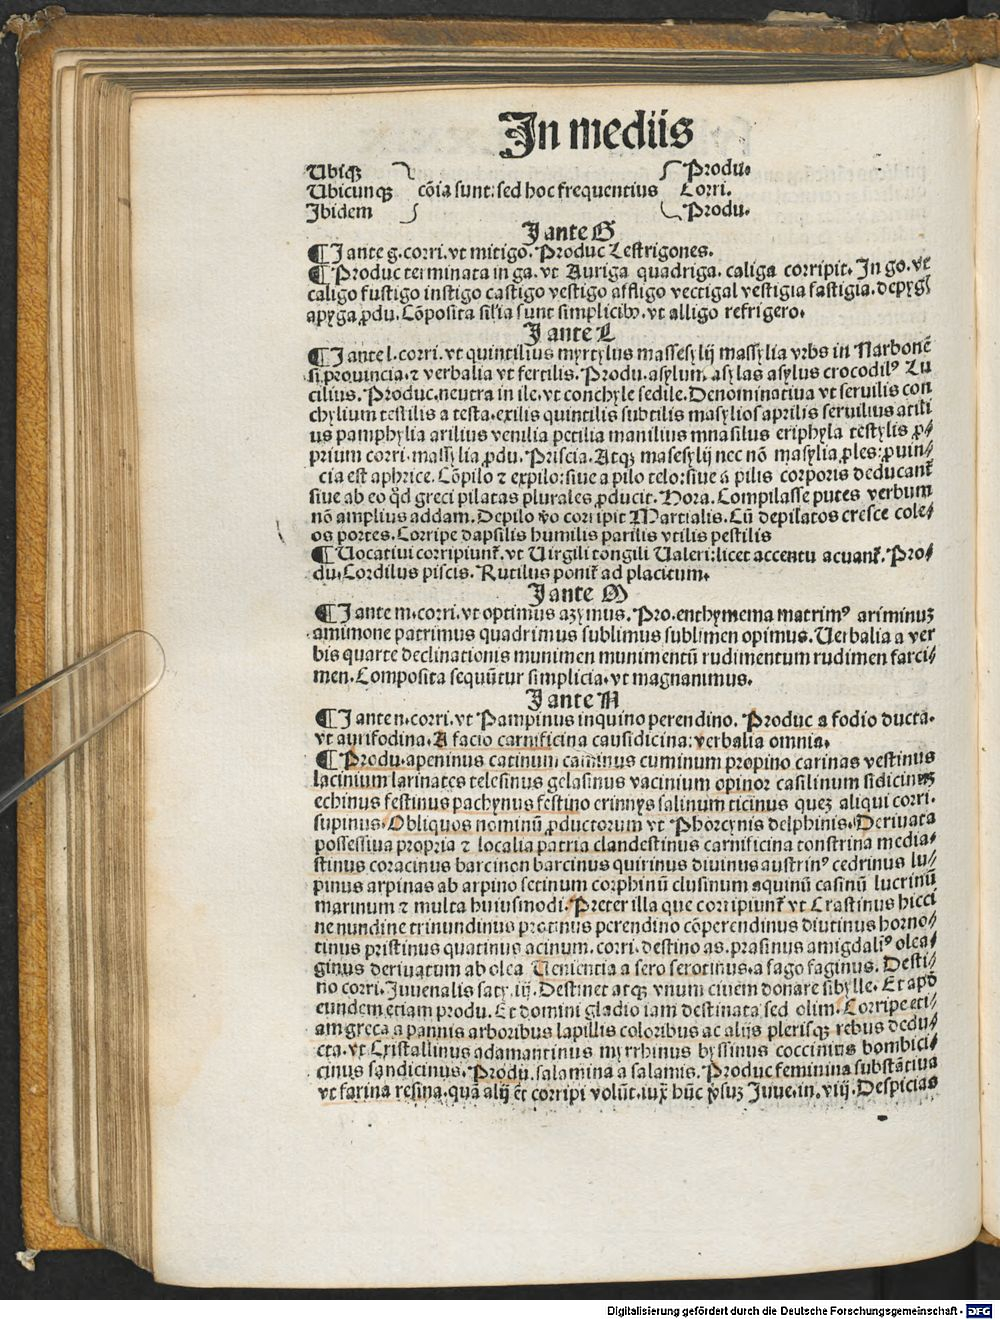 In mediis
Ubiqꝫ Produ.
Ubicunqꝫ cõia sunt: sed hoc frequentius Corri.
Ibidem Produ.
I ante G
¶ I ante g. corri. vt mitigo. Produc Lestrigones.
¶ Produc terminata in ga. vt Auriga quadriga. caliga corripit. In go. vt
caligo fustigo instigo castigo vestigo affligo vectigal vestigia fastigia. depygꝭ
apyga ꝓdu. Cõposita silia sunt simplicibꝰ. vt alligo refrigero.
I ante L
¶ I ante l. corri. vt quintilius myrtylus massesylij massylia vrbs in Narbonẽ
si prouincia. ⁊ verbalia vt fertilis. Produ. asylum asylas asylus crocodilꝰ Lu
cilius. Produc. neutra in ile. vt conchyle sedile. Denominatiua vt seruilis con
chylium testilis a testa. exilis quintilis subtilis masylios aprilis seruilius atili
us pamphylia arilius venilia petilia manilius mnasilus eriphyla testylis ꝓ⸗
prium corri. massylia ꝓdu. Priscia. Atqꝫ masesylij nec nõ masylia ꝓles: ꝓuin⸗
cia est aphrice. Cõpilo ⁊ expilo: siue a pilo telo: siue a pilis corporis deducant̃
siue ab eo qd̃ greci pilatas plurales ꝓducit. Hora. Compilasse putes verbum
nõ amplius addam. Depilo vo corripit Martialis. Cũ depilatos cresce cole⸗
os portes. Corripe dapsilis humilis parilis vtilis pestilis
¶ Uocatiui corripiunt̃. vt Uirgili tongili Ualeri: licet accentu acuant̃. Pro⸗
du. Cordilus piscis. Rutilus ponit̃ ad placitum.
I ante M
¶ I ante m. corri. vt optimus azymus. Pro. enthymema matrimꝰ ariminuꝫ
amimone patrimus quadrimus sublimus sublimen opimus. Uerbalia a ver
bis quarte declinationis munimen munimentũ rudimentum rudimen farci⸗
men. Composita sequũtur simplicia. vt magnanimus.
I ante N
¶ I ante n. corri. vt Pampinus inquino perendino. Produc a fodio ducta.
vt aurifodina. A facio carnificina causidicina: verbalia omnia.
¶ Produ. apeninus catinum caminus cuminum propino carinas vestinus
lacinium larinates telesinus gelasinus vacinium opinor casilinum sidicinuꝫ
echinus festinus pachynus festino erinnys salinum ticinus queꝫ aliqui corri.
supinus. Obliquos nominũ ꝓductorum vt Phorcynis delphinis. Deriuata
possessiua propria ⁊ localia patria clandestinus carnificina tonstrina media⸗
stinus coracinus barcinon barcinus quirinus diuinus austrinꝰ cedrinus lu⸗
pinus arpinas ab arpino setinum corphinũ clusinum aquinũ casinũ lucrinũ
marinum ⁊ multa huiusmodi. Preter illa que corripiunt̃ vt Crastinus hicci
ne nundine trinundinus protinus perendino cõperendinus diutinus horno⸗
tinus pristinus quatinus acinum. corri. destino as. prasinus amigdalꝰ olea⸗
ginus deriuatum ab olea Uenientia a sero serotinus. a fago faginus. Desti⸗
no corri. Juuenalis saty. iij. Destinet atqꝫ vnum ciuem donare sibylle. Et apd̃
eundem etiam produ. Et domini gladio iam destinata sed olim. Corripe eti⸗
am greca a pannis arboribus lapillis coloribus ac alijs plerisqꝫ rebus dedu⸗
cta. vt Cristallinus adamantinus myrrhinus byssinus coccinus bombici⸗
cinus sandicinus. Produ. salamina a salamis. Produc feminina substãtiua
vt farina resina. qua alij et̃ corripi volũt. iux̃ hũc v̓suꝫ Juue. in. viij. Despicias
Digitalisierung gefördert durch die Deutsche Forschungsgemeinschaft - DFG